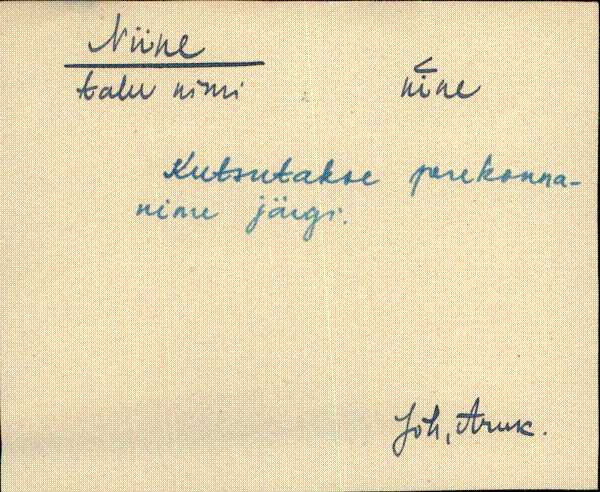 Niine
talu nimi niǹe
Kutsutakse perekonna-
nime järgi.
Joh, Aruk.